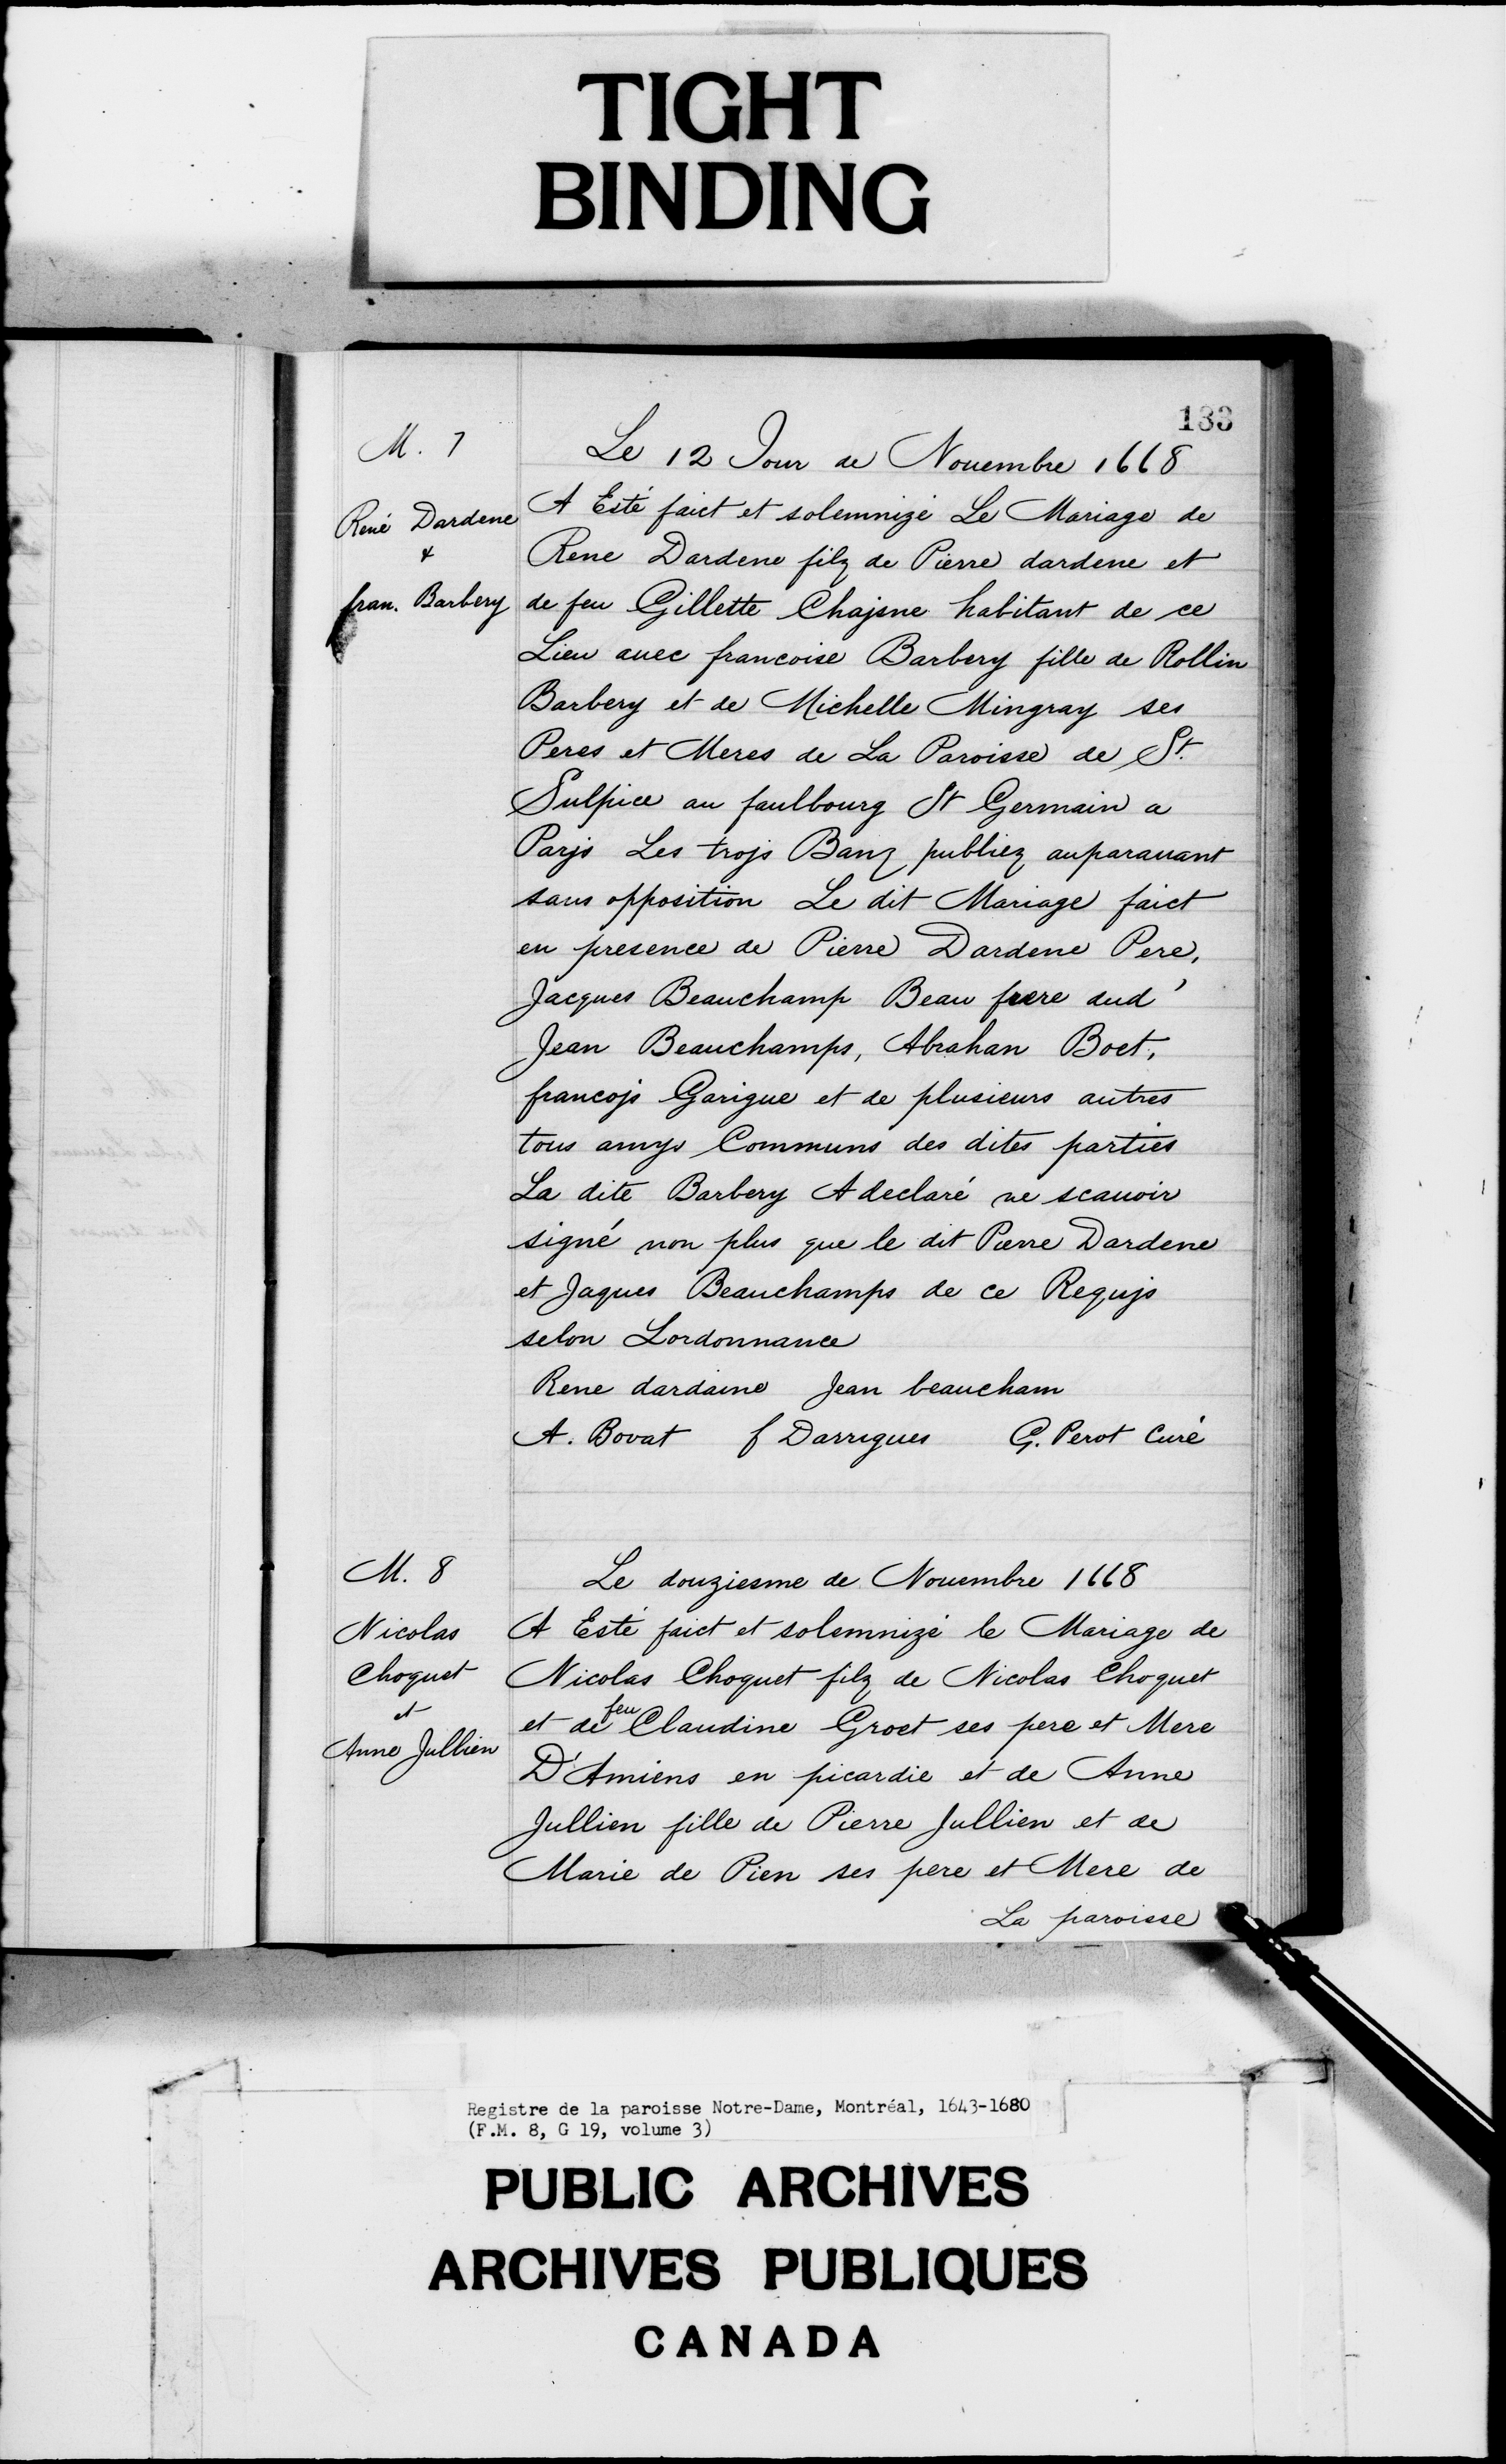 TIGHT
BINDING
133
M. 7
René Dardene
&
fran. Barbery
Le 12 Jour de Nouembre 1668
A Esté faict et solemnizé Le Mariage de
Rene Dardene filz de Pierre dardene et
de feu Gillette Chajsne habitant de ce
Lieu auec francoise Barbery fille de Rollin
Barbery et de Michelle Mingray ses
Peres et Meres de La Paroisse de St.
Sulpice au faulbourg St Germain a
Parjs Les trojs Banz publiez auparauant
sans opposition Le dit Mariage faict
en presence de Pierre Dardene Pere,
Jacques Beauchamp Beau frere dud'
Jean Beauchamps, Abrahan Boet,
francojs Garigue et de plusieurs autres
tous amys Communs des dites parties
La dite Barbery A declaré ne scauoir
signé non plus que le dit Pierre Dardene
et Jaques Beauchamps de ce Requjs
selon Lordonnance
Rene dardaine Jean beaucham
A. Bovat f Darrigues G. Perot Curé
M. 8
Nicolas
Choquet
et
Anne Jullien
Le douziesme de Nouembre 1668
A Esté faict et solemnizé le Mariage de
Nicolas Choquet filz de Nicolas Choquet
et de feu Claudine Groet ses pere et Mere
D'Amiens en picardie et de Anne
Jullien fille de Pierre Jullien et de
Marie de Pien ses pere et Mere de
La paroisse
Registre de la paroisse Notre-Dame, Montréal, 1643-1680
(F.M. 8, G 19, volume 3)
PUBLIC ARCHIVES
ARCHIVES PUBLIQUES
CANADA